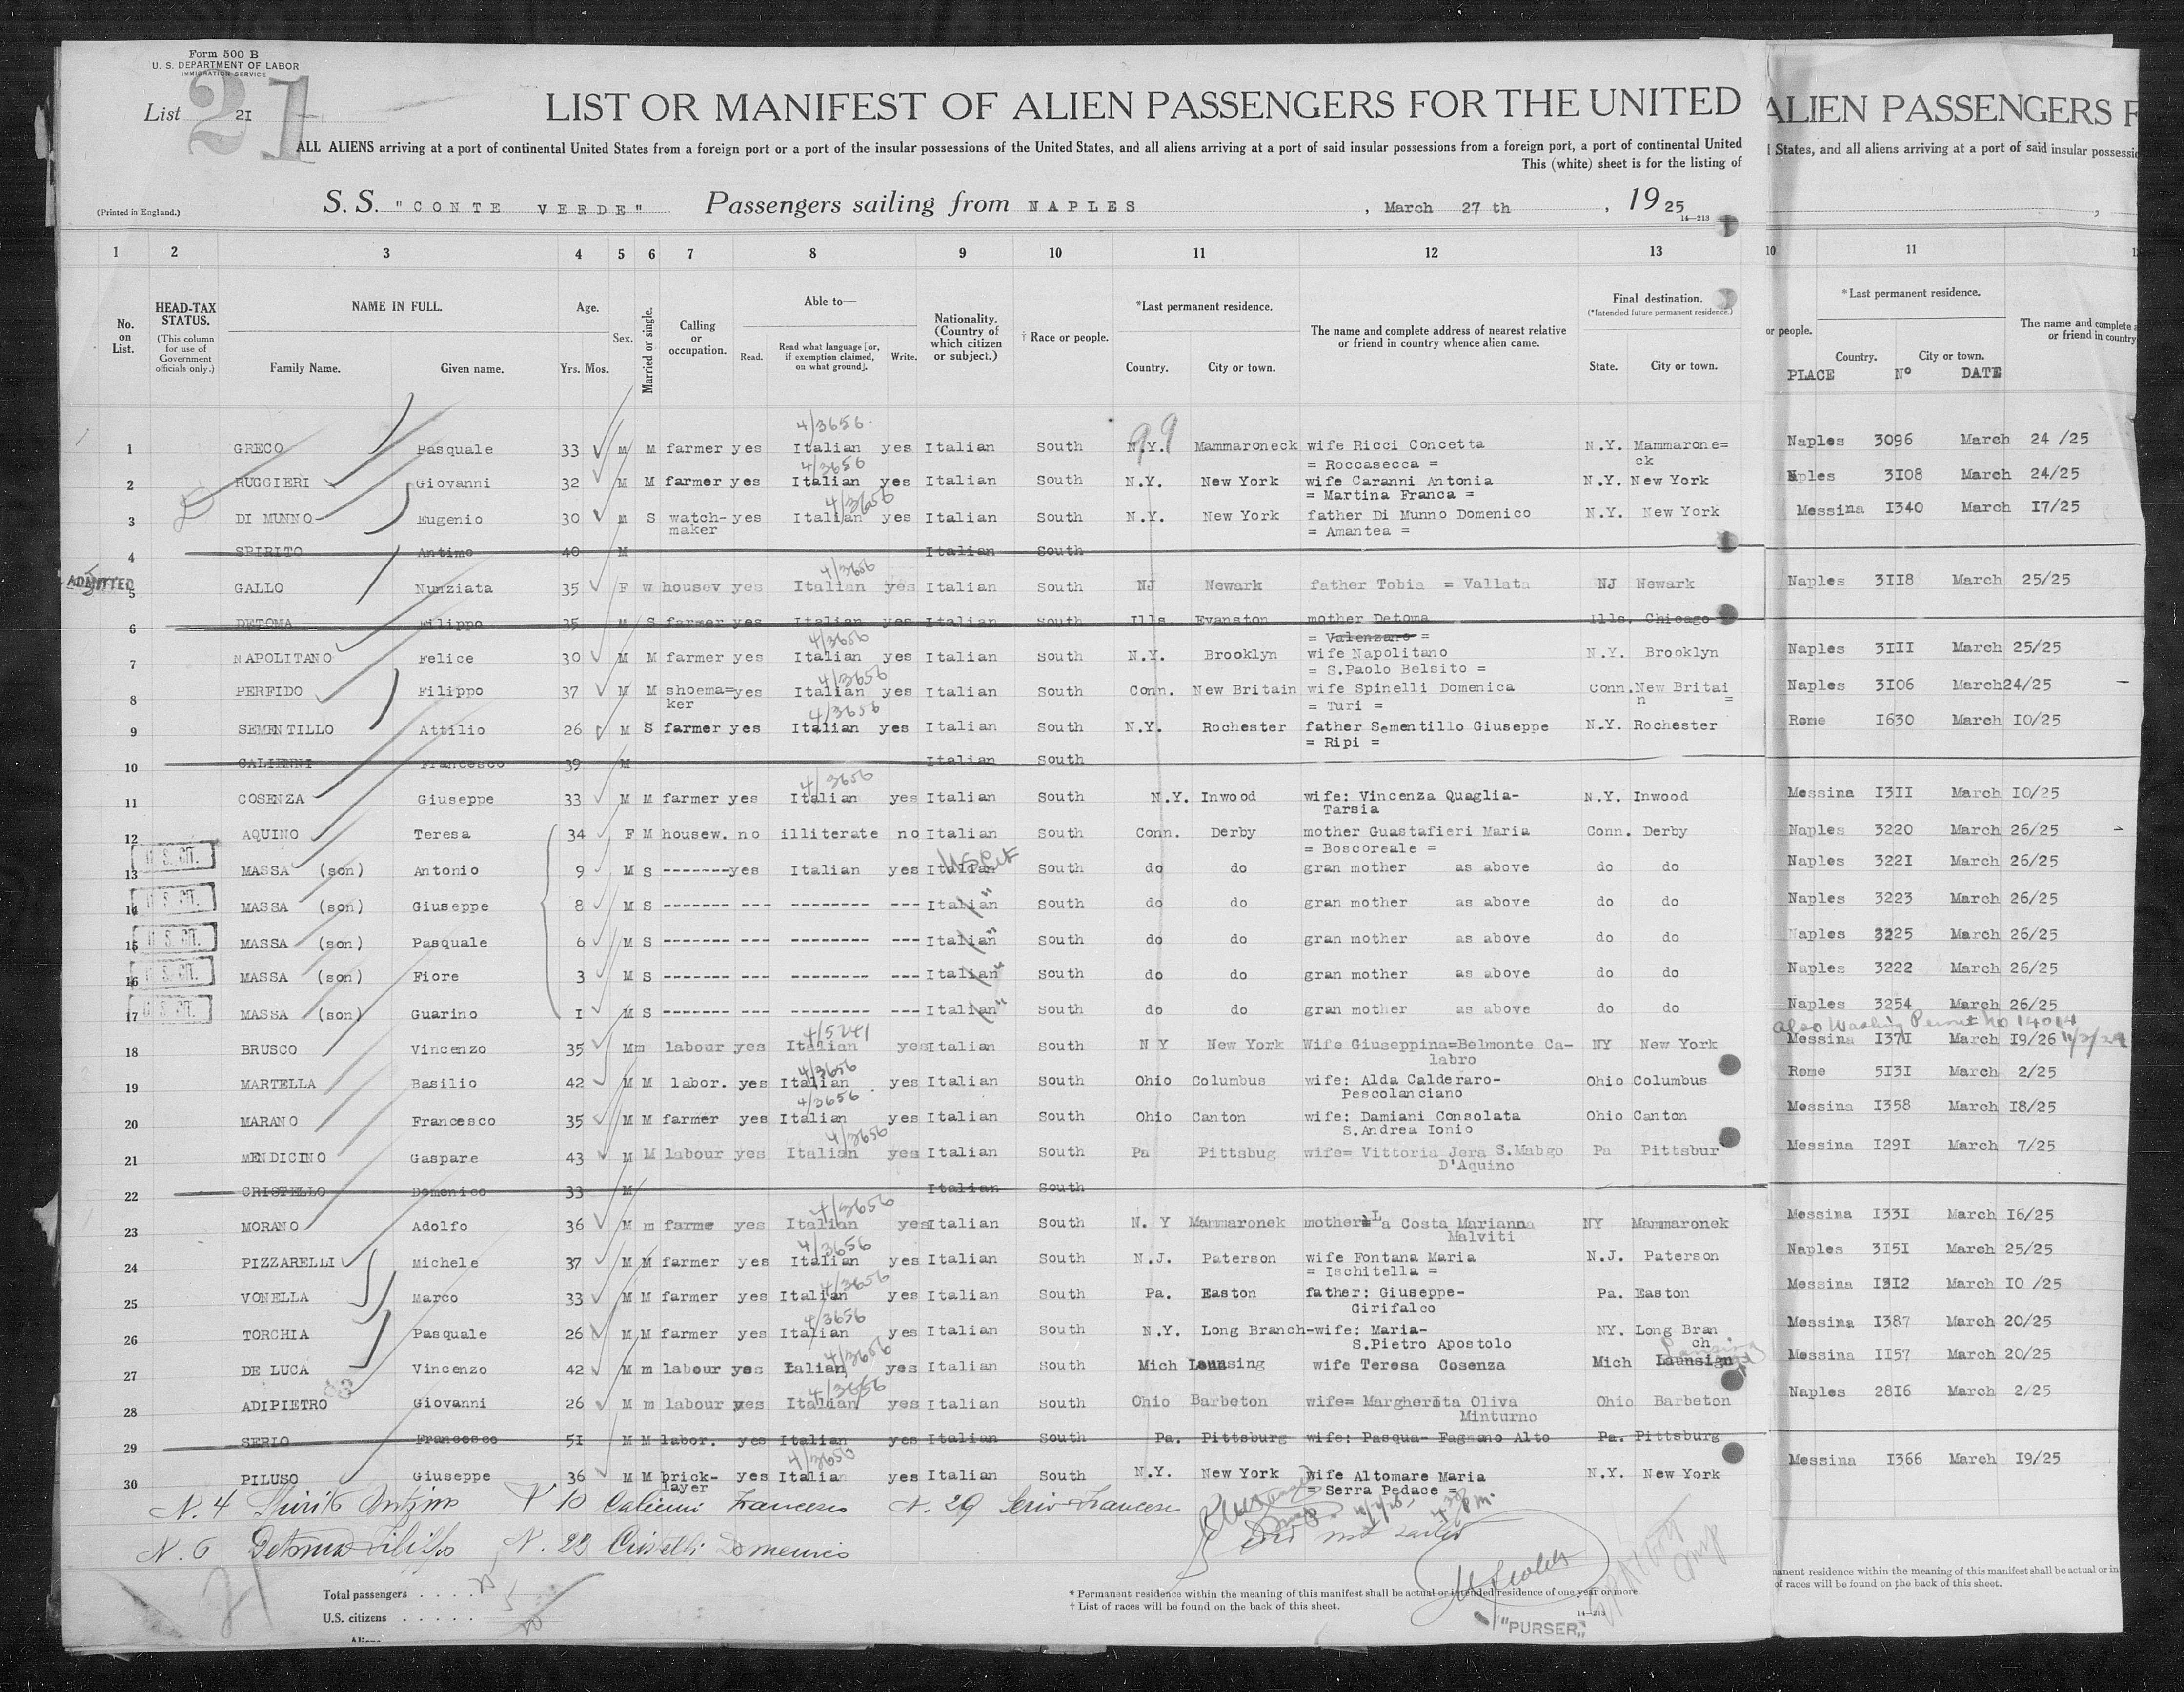 Form 500 B
U. S. DEPARTMENT OF LABOR
IMMIGRATION SERVICE
21
List 2I
LIST OR MANIFEST OF ALIEN PASSENGERS FOR THE UNITED
ALL ALIENS arriving at a port of continental United States from a foreign port or a port of the insular possessions of the United States, and all aliens arriving at a port of said insular possessions from a foreign port, a port of continental United
This (white) sheet is for the listing of
(Printed in England.)
S. S. "CONTE VERDE" Passengers sailing from NAPLES , March 27 th , 19 25
14—213
ALIEN PASSENGERS F
States, and all aliens arriving at a port of said insular possessio
1 2 3 4 5 6 7 8 9 10 11 12 13 10 11
No. on List.
HEAD-TAX STATUS. (This column for use of Government officials only.)
NAME IN FULL. Family Name. Given name.
Age. Yrs. Mos.
Sex.
Married or single.
Calling or occupation.
Able to— Read. Read what language [or, if exemption claimed, on what ground]. Write.
Nationality. (Country of which citizen or subject.)
† Race or people.
*Last permanent residence. Country. City or town.
The name and complete address of nearest relative or friend in country whence alien came.
Final destination. (*Intended future permanent residence.) State. City or town.
or people.
*Last permanent residence. Country. City or town.
The name and complete a
or friend in country
PLACE Nº DATE
4/3656
99
1 GRECO Pasquale 33 M M farmer yes Italian yes Italian South N.Y. Mammaroneck wife Ricci Concetta N.Y. Mammarone= Naples 3096 March 24 /25
= Roccasecca = ck
4/3656
2 RUGGIERI Giovanni 32 M M farmer yes Italian yes Italian South N.Y. New York wife Caranni Antonia N.Y. New York Nples 3I08 March 24/25
= Martina Franca =
4/3656
3 DI MUNNO Eugenio 30 M S watch- yes Italian yes Italian South N.Y. New York father Di Munno Domenico N.Y. New York Messina I340 March I7/25
maker = Amantea =
4 SPIRITO Antimo 40 M Italian South
4/3656
ADMITTED
5 GALLO Nunziata 35 F w housev yes Italian yes Italian South NJ Newark father Tobia = Vallata NJ Newark Naples 3II8 March 25/25
6 DETOMA Filippo 35 M S farmer yes Italian yes Italian South Ills. Evanston mother Detoma Ills. Chicago
= Valenzano =
4/3656
7 NAPOLITANO Felice 30 M M farmer yes Italian yes Italian South N.Y. Brooklyn wife Napolitano N.Y. Brooklyn Naples 3III March 25/25
= S.Paolo Belsito =
4/3656
8 PERFIDO Filippo 37 M M shoema= yes Italian yes Italian South Conn. New Britain wife Spinelli Domenica Conn. New Britai Naples 3I06 March24/25
ker = Turi = n =
4/3656
9 SEMENTILLO Attilio 26 M S farmer yes Italian yes Italian South N.Y. Rochester father Sementillo Giuseppe N.Y. Rochester Rome I630 March I0/25
= Ripi =
10 CALIENNI Francesco 39 M Italian South
4/3656
11 COSENZA Giuseppe 33 M M farmer yes Italian yes Italian South N.Y. Inwood wife: Vincenza Quaglia- N.Y. Inwood Messina I3II March I0/25
Tarsia
12 AQUINO Teresa 34 F M housew. no illiterate no Italian South Conn. Derby mother Guastafieri Maria Conn. Derby Naples 3220 March 26/25
= Boscoreale =
U. S. CIT. US Cit
13 MASSA (son) Antonio 9 M S -------yes Italian yes Italian South do do gran mother as above do do Naples 322I March 26/25
U. S. CIT.
14 MASSA (son) Giuseppe 8 M S ------- --- -------- --- Italian " South do do gran mother as above do do Naples 3223 March 26/25
U. S. CIT.
15 MASSA (son) Pasquale 6 M S ------- --- -------- --- Italian " South do do gran mother as above do do Naples 3225 March 26/25
U. S. CIT.
16 MASSA (son) Fiore 3 M S ------- --- -------- --- Italian " South do do gran mother as above do do Naples 3222 March 26/25
U. S. CIT.
17 MASSA (son) Guarino I M S ------- --- -------- --- Italian " South do do gran mother as above do do Naples 3254 March 26/25
4/5241 also Washing Permit No 14014
18 BRUSCO Vincenzo 35 M m labour yes Italian yes Italian South N Y New York Wife Giuseppina=Belmonte Ca- NY New York Messina I37I March I9/26 11/3/24
labro
4/3656
19 MARTELLA Basilio 42 M M labor. yes Italian yes Italian South Ohio Columbus wife: Alda Calderaro- Ohio Columbus Rome 5I3I March 2/25
Pescolanciano
4/3656
20 MARANO Francesco 35 M M farmer yes Italian yes Italian South Ohio Canton wife: Damiani Consolata Ohio Canton Messina I358 March I8/25
S.Andrea Ionio
4/3656
21 MENDICINO Gaspare 43 M M labour yes Italian yes Italian South Pa Pittsbug wife= Vittoria Jera S.Mabgo Pa Pittsbur Messina I29I March 7/25
D'Aquino
22 CRISTELLO Domenico 33 M Italian South
4/3656
23 MORANO Adolfo 36 M m farme yes Italian yes Italian South N. Y Mammaronek mother= La Costa Marianna NY Mammaronek Messina I33I March I6/25
Malviti
4/3656
24 PIZZARELLI Michele 37 M M farmer yes Italian yes Italian South N.J. Paterson wife Fontana Maria N.J. Paterson Naples 3I5I March 25/25
= Ischitella =
4/3656
25 VONELLA Marco 33 M M farmer yes Italian yes Italian South Pa. Easton father: Giuseppe- Pa. Easton Messina I3I2 March I0 /25
Girifalco
4/3656
26 TORCHIA Pasquale 26 M M farmer yes Italian yes Italian South N.Y. Long Branch-wife: Maria- NY. Long Bran Messina I387 March 20/25
S.Pietro Apostolo ch
4/3656 Lansing
27 DE LUCA Vincenzo 42 M m labour yes Italian yes Italian South Mich Launsing wife Teresa Cosenza Mich Launsign Messina II57 March 20/25
4/3656
28 ADIPIETRO Giovanni 26 M m labour yes Italian yes Italian South Ohio Barbeton wife= Margherita Oliva Ohio Barbeton Naples 28I6 March 2/25
Minturno
29 SERIO Francesco 5I M M labor. yes Italian yes Italian South Pa. Pittsburg wife: Pasqua- Fagnano Alto Pa. Pittsburg
4/3656
30 PILUSO Giuseppe 36 M M brick- yes Italian yes Italian South N.Y. New York wife Altomare Maria N.Y. New York Messina I366 March I9/25
layer = Serra Pedace =
N. 4 Spirito Antimo N 10 Calienni Francesco N. 29 Serio Francesco
N. 6 Detoma Filippo N. 22 Cristelli Domenico did not sailed
21
Total passengers . . . .
U.S. citizens . . . . . 5
Aliens
* Permanent residence within the meaning of this manifest shall be actual or intended residence of one year or more
† List of races will be found on the back of this sheet.
14—213
"PURSER"
manent residence within the meaning of this manifest shall be actual or in
of races will be found on the back of this sheet.